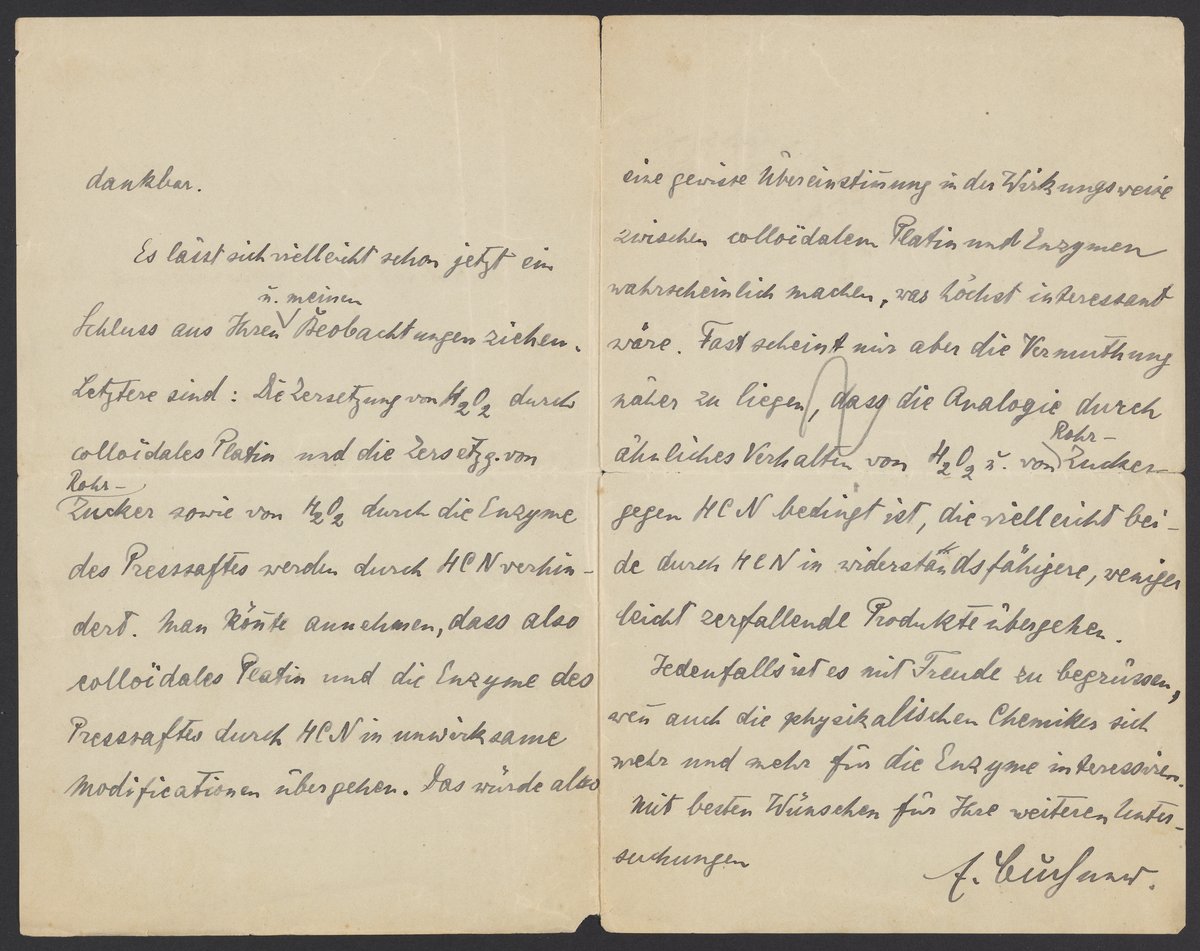 dankbar.
Es lässt sich vielleicht schon jetzt ein
u. meinen
Schluss aus Ihren Beobachtungen ziehen.
Letztere sind: Die Zersetzung von H2O2 durch
colloïdales Platin und die Zersetzg. von
Rohr-
Zucker sowie von H2O2 durch die Enzyme
des Presssaftes werden durch HCN verhin-
dert. Man kön̄te annehmen, dass also
colloïdales Platin und die Enzyme des
Presssaftes durch HCN in unwirksame
Modificationen übergehen. Das würde also
eine gewisse Übereinstim̄ung in der Wirkungsweise
zwischen colloïdalem Platin und Enzymen
wahrscheinlich machen, was höchst interessant
wäre. Fast scheint mir aber die Vermuthung
näher zu liegen, dass die Analogie durch
Rohr-
ähnliches Verhalten von H2O2 u. von Zucker
gegen HCN bedingt ist, die vielleicht bei-
de durch HCN in widerstandsfähigere, weniger
leicht zerfallende Produkte übergehen.
Jedenfalls ist es mit Freude zu begrüssen,
wen̄ auch die physikalischen Chemiker sich
mehr und mehr für die Enzyme interessiren.
Mit besten Wünschen für Ihre weiteren Unter-
suchungen
E. Buchner.